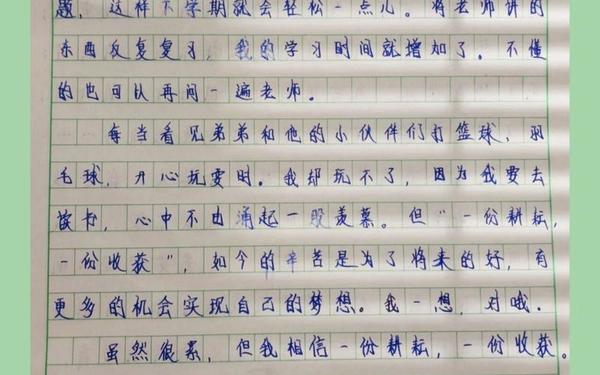 题，这样下学期就会轻松一点儿。将老师讲的
东西反复复习，我的学习时间就增加了。不懂
的也可以再问一遍老师。
每当看见弟弟和他的小伙伴们打篮球，羽
毛球，开心玩耍时。我却玩不了，因为我要去
读书，心中不由涌起一股羡慕。但"一份耕耘，
一份收获"，如今的辛苦是为了将来的好，有
更多的机会实现自己的梦想。我一想，对哦。
虽然很累，但我相信一份耕耘，一份收获。